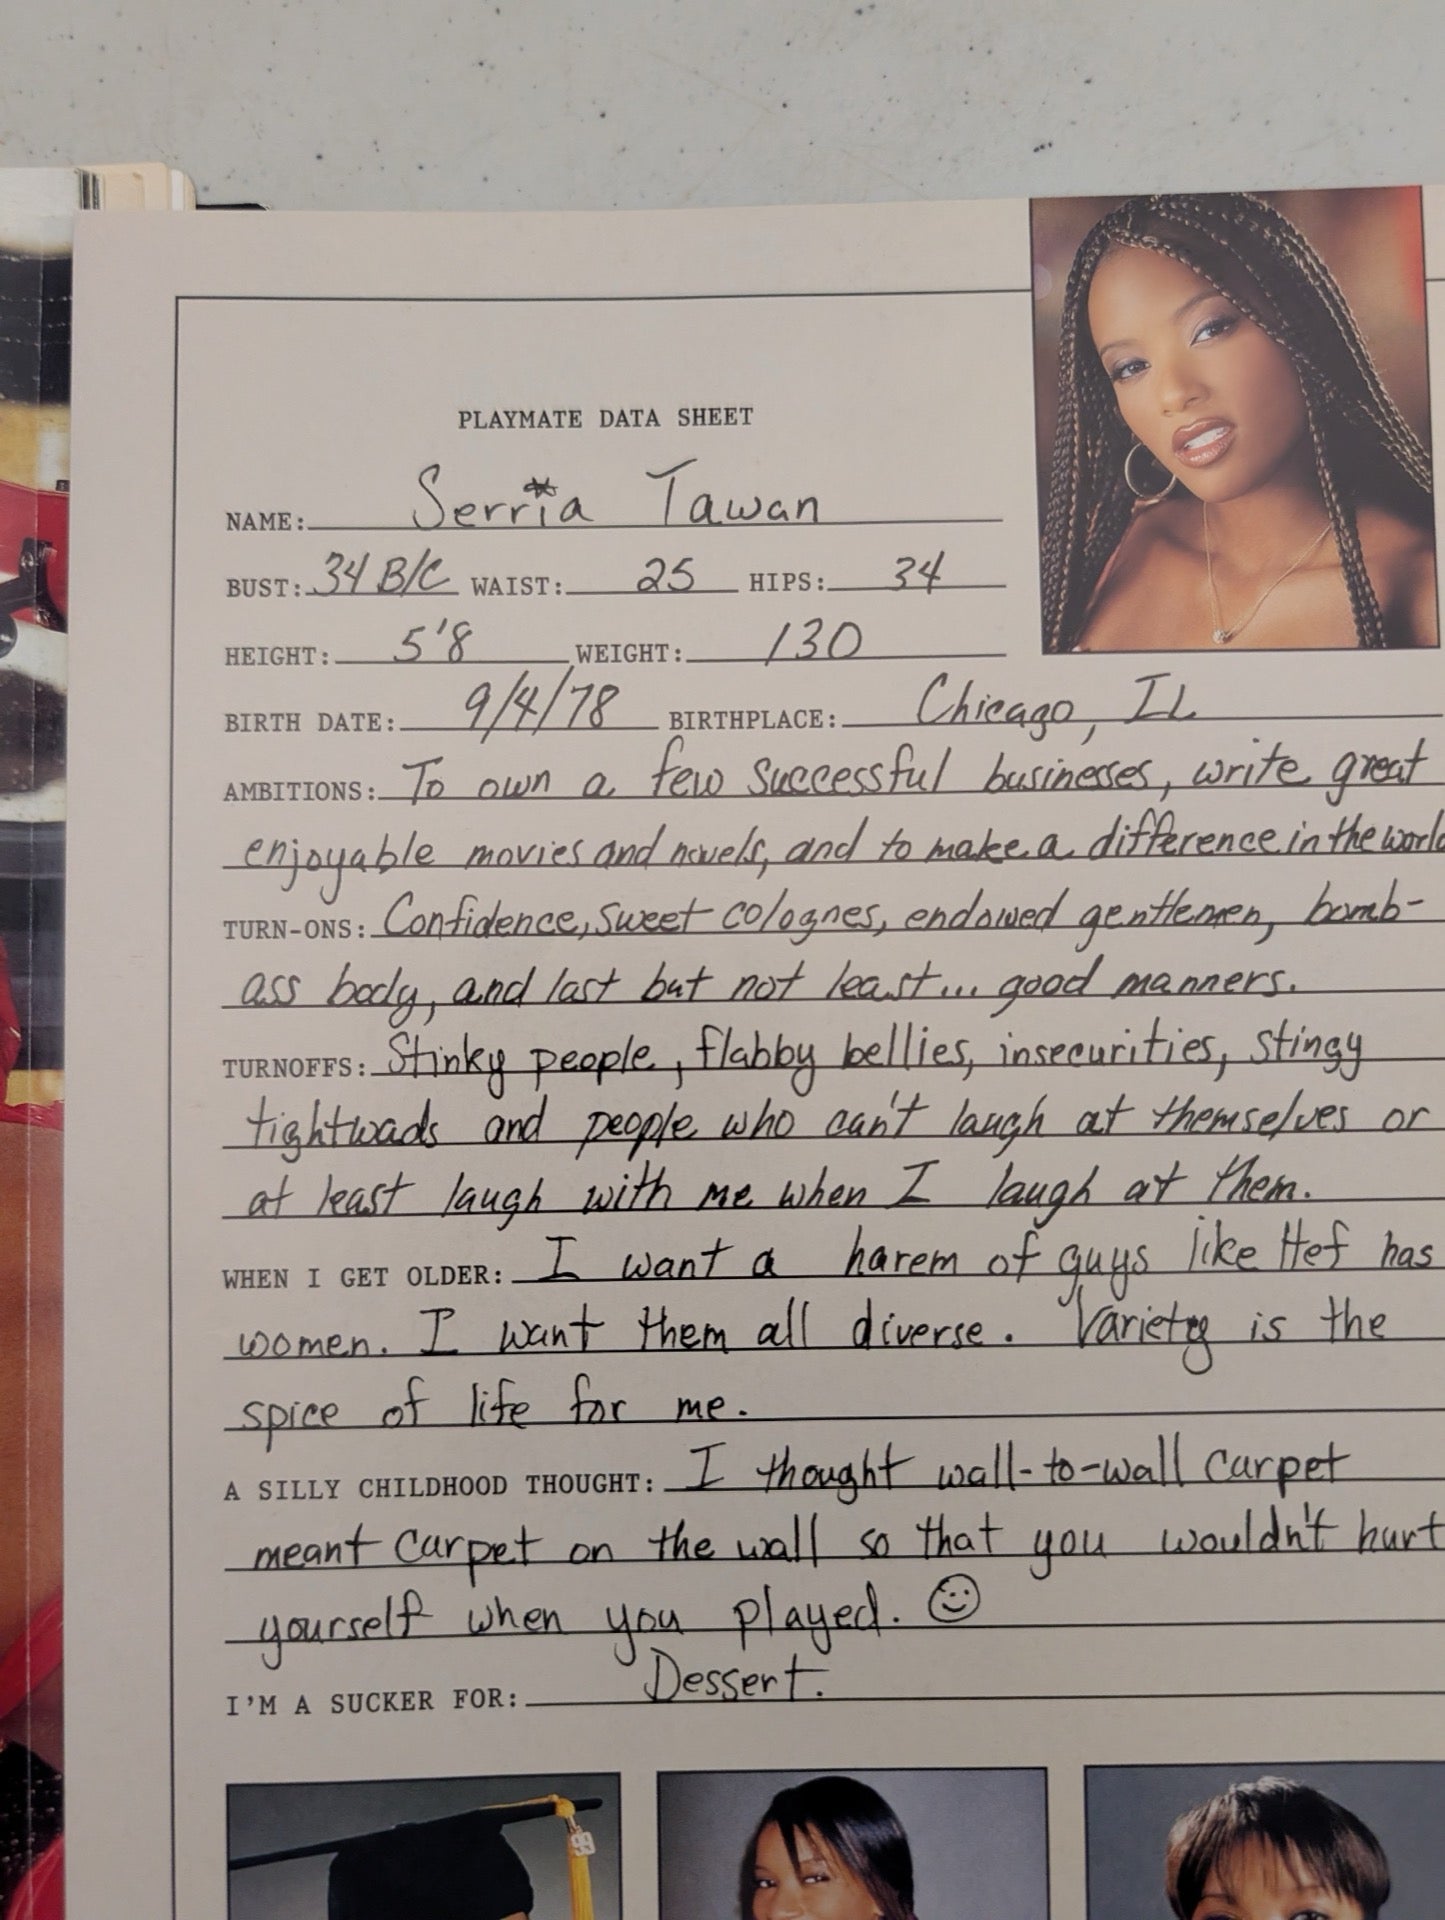 PLAYMATE DATA SHEET
NAME: Serria Tawan
BUST: 34 B/C WAIST: 25 HIPS: 34
HEIGHT: 5'8 WEIGHT: 130
BIRTH DATE: 9/4/78 BIRTHPLACE: Chicago, IL
AMBITIONS: To own a few successful businesses, write great
enjoyable movies and novels, and to make a difference in the world
TURN-ONS: Confidence, sweet colognes, endowed gentlemen, bomb-
ass body, and last but not least... good manners.
TURNOFFS: Stinky people, flabby bellies, insecurities, stingy
tightwads and people who can't laugh at themselves or
at least laugh with me when I laugh at them.
WHEN I GET OLDER: I want a harem of guys like Hef has
women. I want them all diverse. Variety is the
spice of life for me.
A SILLY CHILDHOOD THOUGHT: I thought wall-to-wall carpet
meant carpet on the wall so that you wouldn't hurt
yourself when you played. ☺
I'M A SUCKER FOR: Dessert.
99